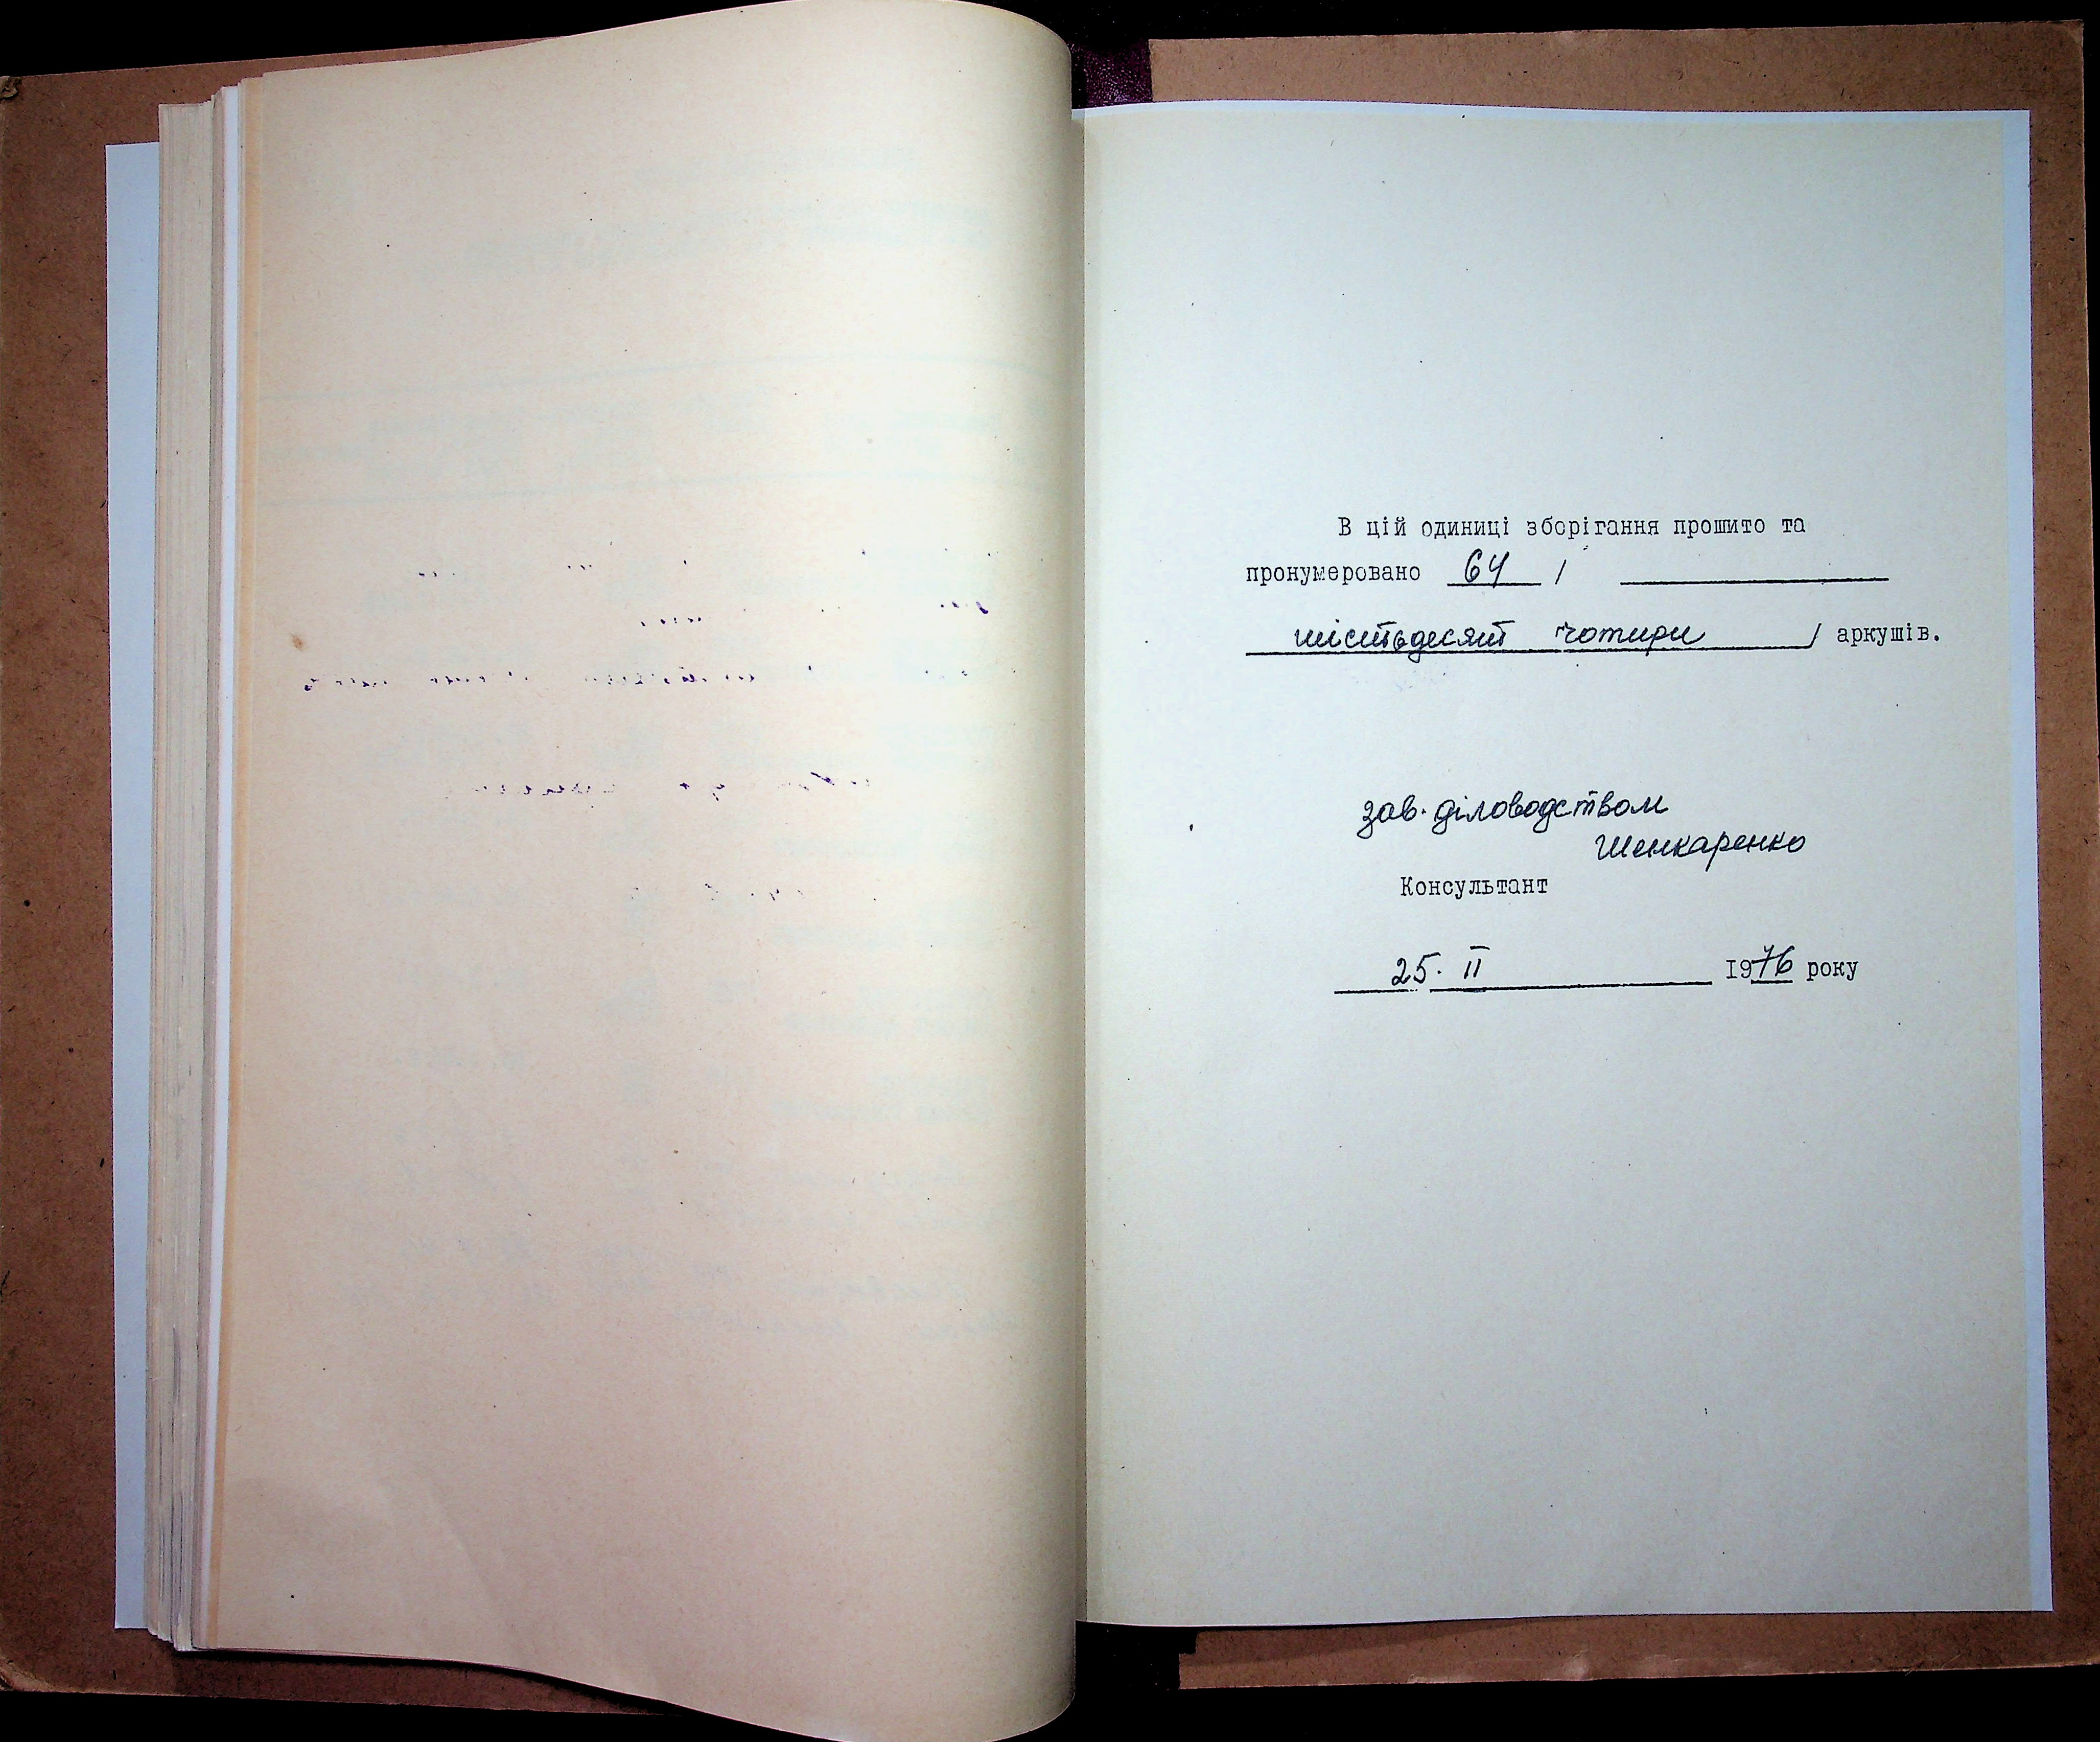 В цій одиниці зборігання прошито та
пронумеровано 64 /
шістьдесят чотири / аркушів.
зав. діловодством
Шенкаренко
Консультант
25. II 1976 року